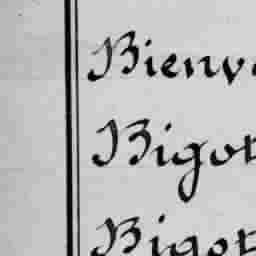 Bienv
Bigot
Bigot